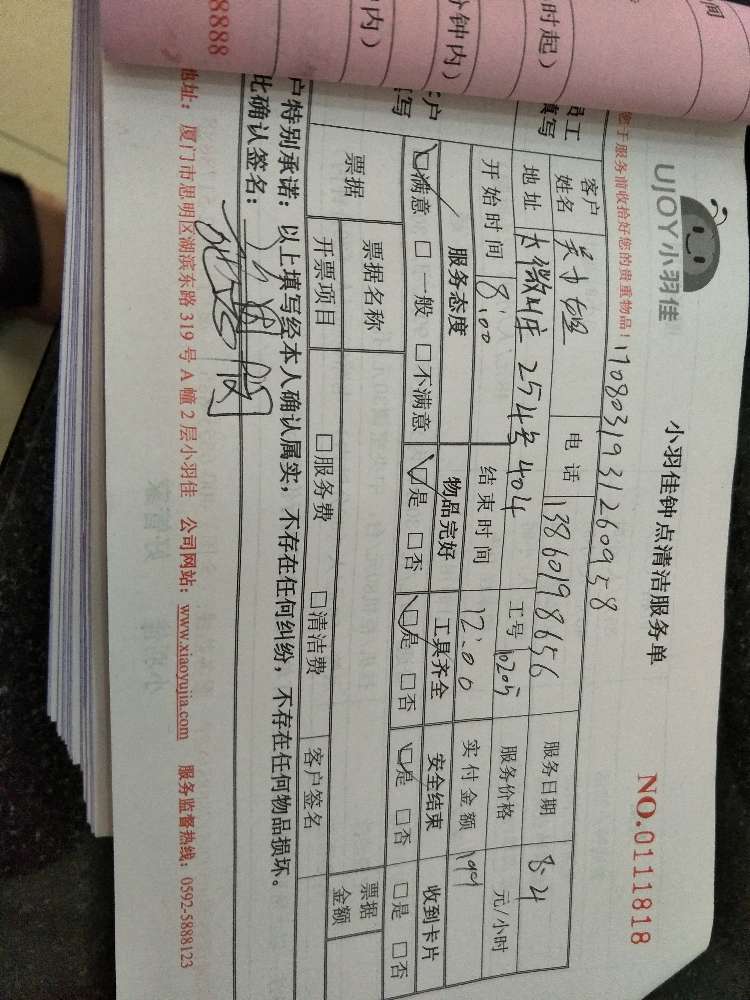 间
时起)
分钟内)
内)
8888
员工
填写
客户
填写
UJOY小羽佳
小羽佳钟点清洁服务单
NO.0111818
您于服务前收拾好您的贵重物品!
1708031931260958
客户姓名
电话 13860198656
服务日期 8.4
地址 254号404
工号
服务价格 元/小时
开始时间 8:00
结束时间 12:00
实付金额
服务态度 物品完好 工具齐全 安全结束 收到卡片
☑满意 □一般 □不满意 ☑是 □否 ☑是 □否 ☑是 □否 □是 □否
票据 票据名称 票据金额
开票项目 □服务费 □清洁费 客户签名
户特别承诺:以上填写经本人确认属实,不存在任何纠纷,不存在任何物品损坏。
比确认签名:
地址:厦门市思明区湖滨东路319号A幢2层小羽佳 公司网站:www.xiaoyujia.com 服务监督热线:0592-5888123